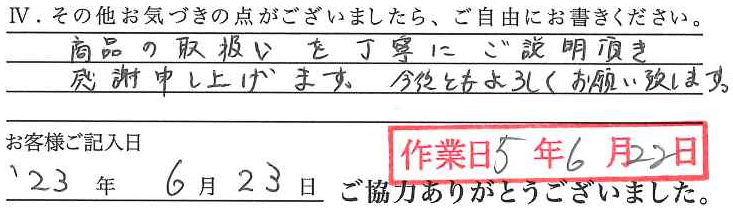 Ⅳ.その他お気づきの点がございましたら、ご自由にお書きください。
商品の取扱いを丁寧にご説明頂き
感謝申し上げます。今後ともよろしくお願い致します。
お客様ご記入日
作業日5年6月22日
'23年6月23日 ご協力ありがとうございました。